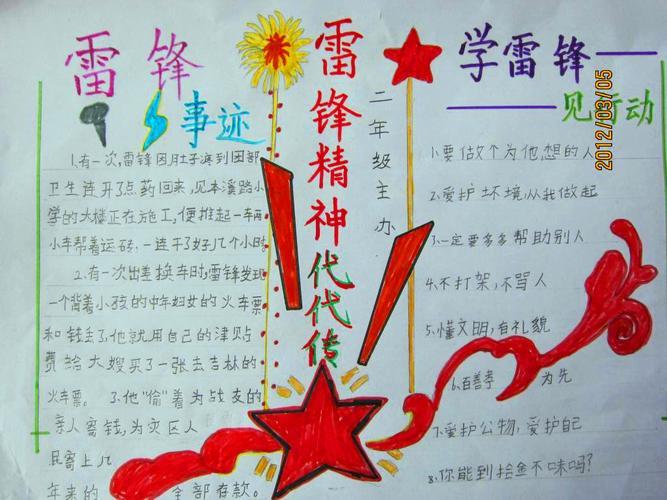 雷锋
小事迹
1.有一次,雷锋因肚子疼到团部
卫生连开了点药回来,见本溪路小
学的大楼正在施工,便推起一車
小车帮着运砖.一连干了好几个小时
2.有一次出差换车时,雷锋发现
一个背着小孩的中年妇女的火车票
和钱丢了,他就用自己的津贴
费给大嫂买了一张去吉林的
火车票。3.他“偷”着为战友的
亲人寄钱,为灾区人
民寄上几
年来的全部存款。
雷锋精神代代传
二年级主办
学雷锋
见行动
1.要做个为他想的人
2.爱护环境,从我做起
3.一定要多多帮助别人
4.不打架,不骂人
5.懂文明,有礼貌
6.百善孝为先
7.爱护公物,爱护自己
8.你能到拾金不昧吗?
2012/03/05